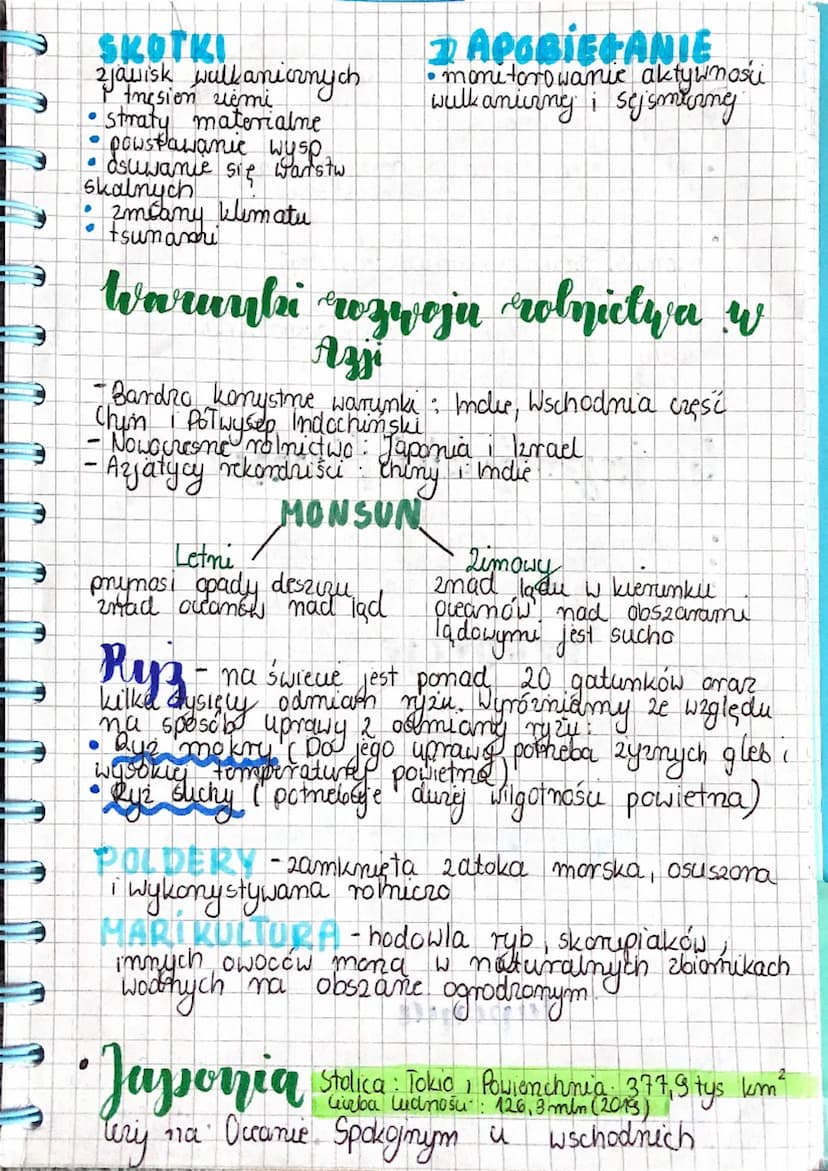 SKUTKI
zjawisk wulkanicznych
i trzęsień ziemi
• straty materialne
• powstawanie wysp
• osuwanie się warstw
skalnych
• zmiany klimatu
• tsunami
ZAPOBIEGANIE
• monitorowanie aktywności
wulkanicznej i sejsmicznej
Warunki rozwoju rolnictwa w
Azji
- Bardzo korzystne warunki: Indie, Wschodnia część
Chin i Półwysep Indochiński
- Nowoczesne rolnictwo: Japonia i Izrael
- Azjatycy rekordziści: Chiny i Indie
MONSUN
Letni
przynosi opady deszczu
znad oceanów nad ląd
Zimowy
znad lądu w kierunku
oceanów. nad obszarami
lądowymi jest sucho
Ryż - na świecie jest ponad 20 gatunków oraz
kilka tysięcy odmian ryżu. Wyróżniamy ze względu
na sposób uprawy 2 odmiany ryżu:
• Ryż mokry (Do jego uprawy potrzeba żyznych gleb i
wysokiej temperatury powietrza)
• Ryż suchy (potrzebuje dużej wilgotności powietrza)
POLDERY - zamknięta zatoka morska, osuszona
i wykorzystywana rolniczo
MARIKULTURA - hodowla ryb, skorupiaków,
innych owoców morza w naturalnych zbiornikach
wodnych na obszarze ogrodzonym
• Japonia Stolica: Tokio, Powierzchnia: 377,9 tys km²
Liczba ludności: 126,3 mln (2019)
leży na Oceanie Spokojnym u wschodnich